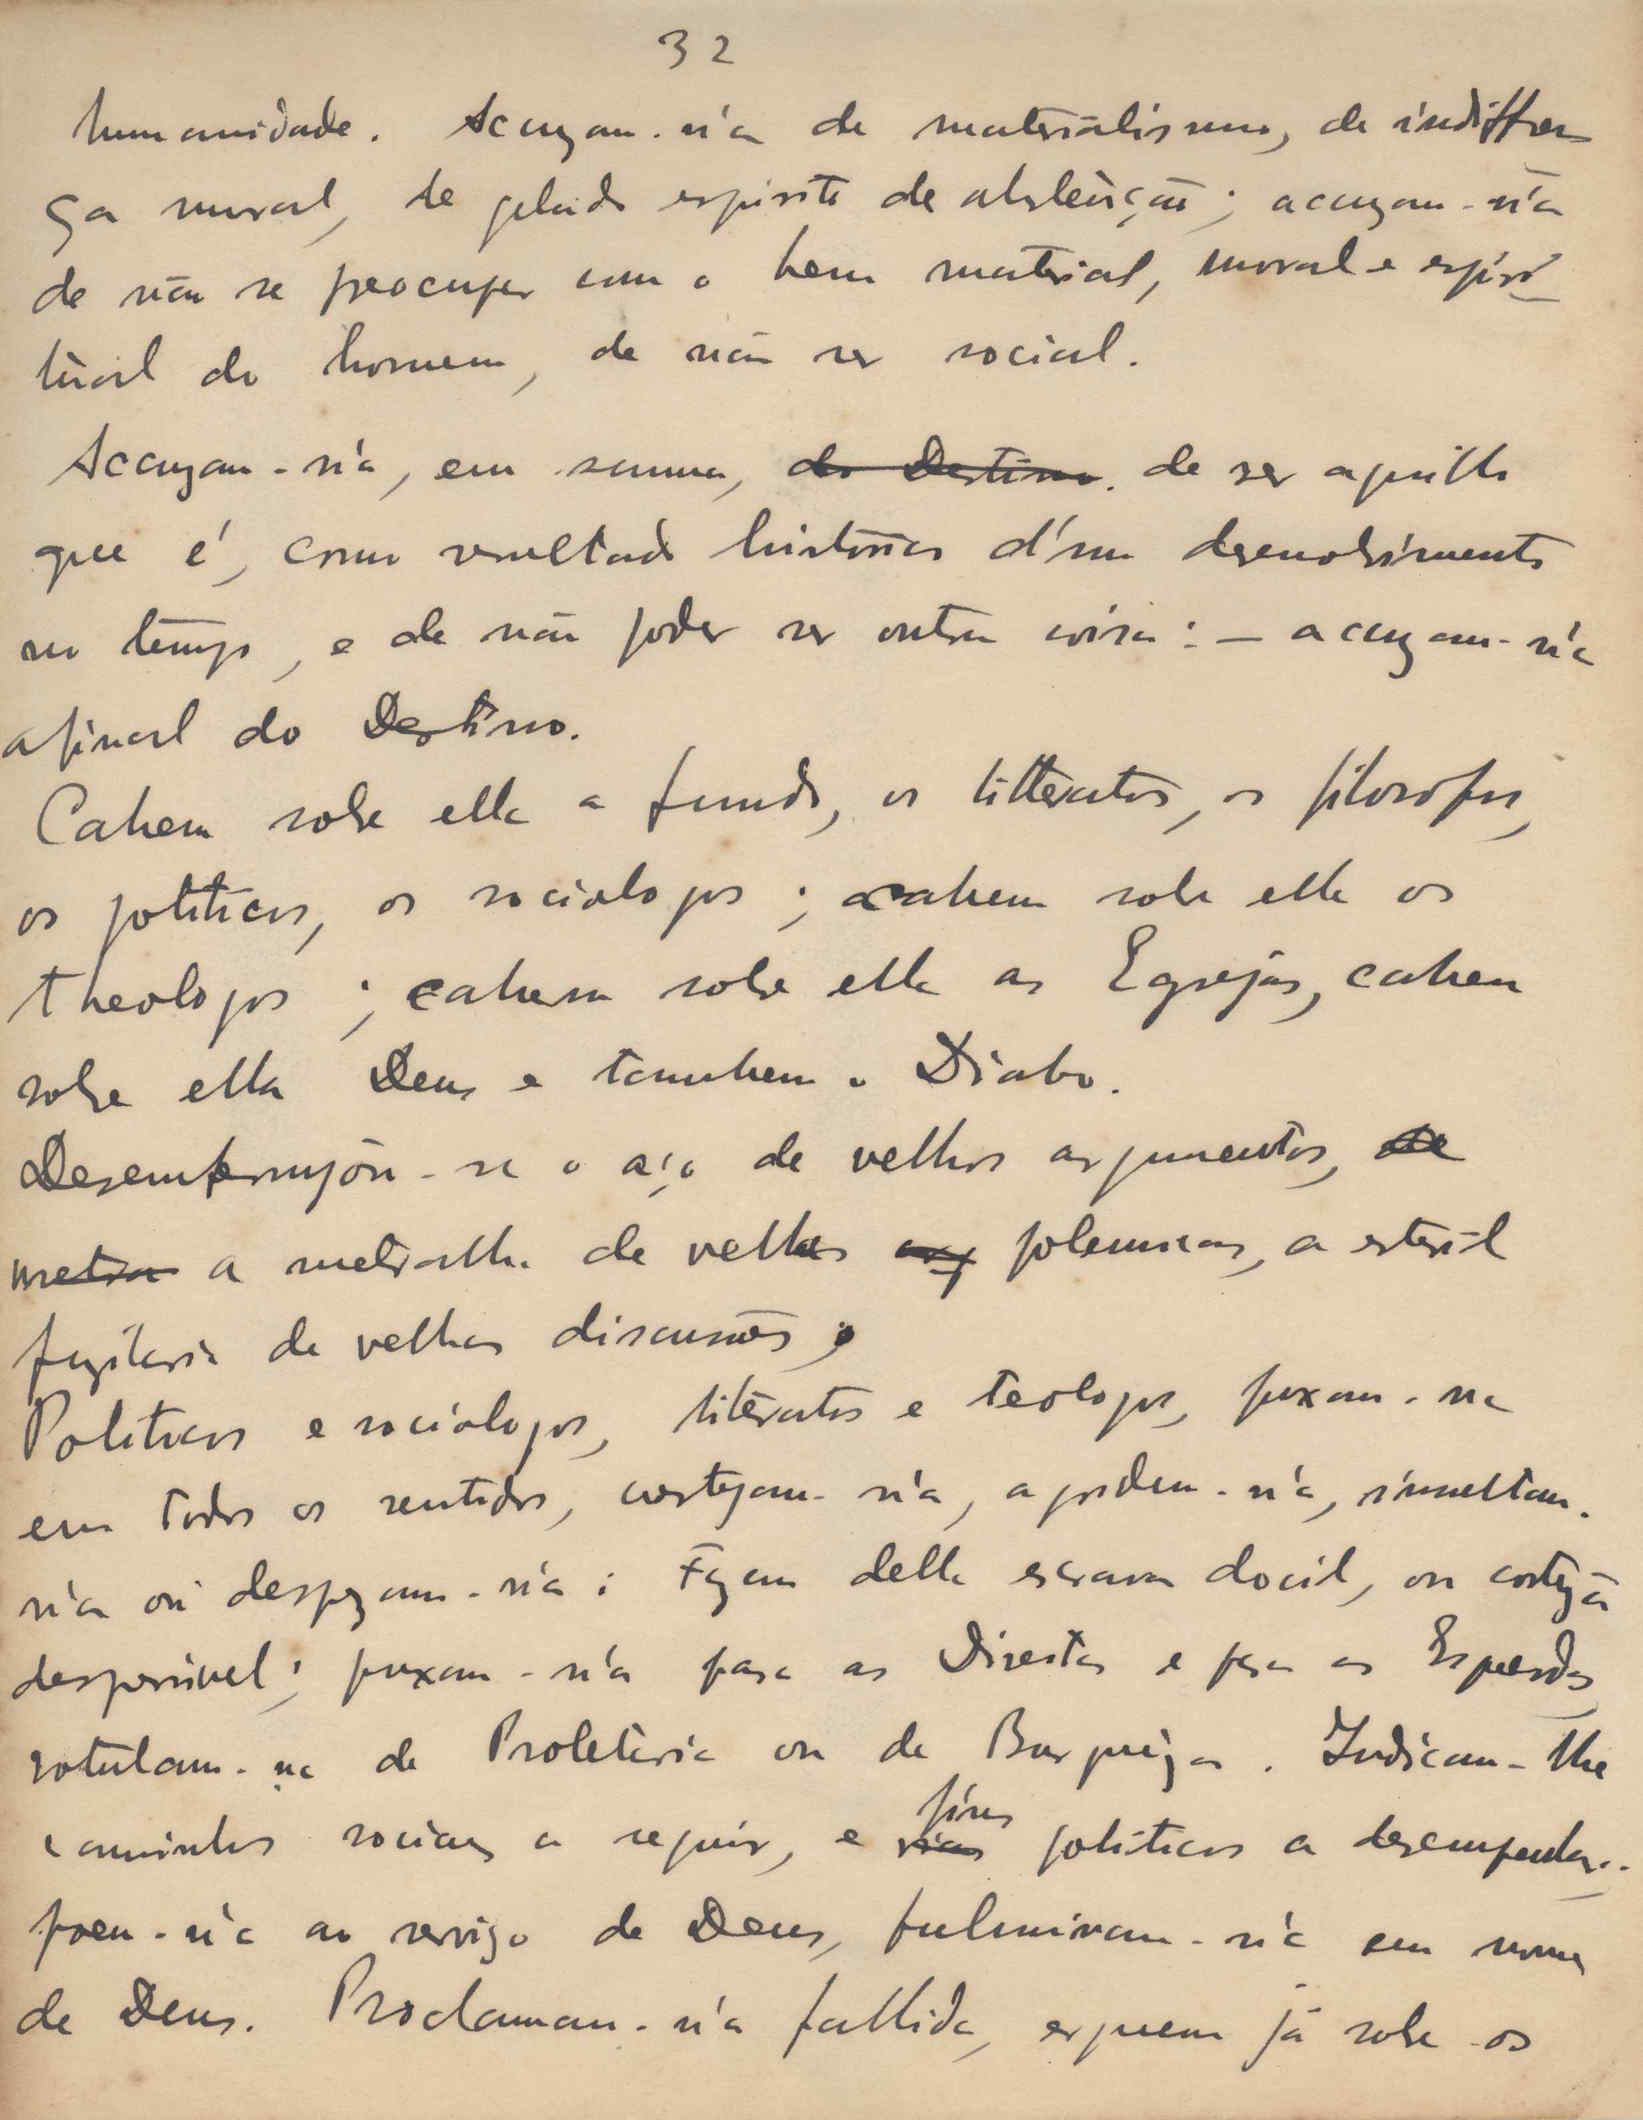 32
humanidade. Accuzam-n'a de materialismo, de indifferen
ça moral, de gelado espirito de abstenção; accuzam-n'a
de não se preocupar com o bem material, moral e espiri
tual do homem, de não ser social.
Accuzam-n'a, em summa, do Destino. de ser aquillo
que é, como resultado historico d'um desenvolvimento
no tempo, e de não poder ser outra coisa: — accuzam-n'a
afinal do Destino.
Cahem sobre ella a fundo, os litteratos, os filosofos,
os politicos, os sociologos; cahem sobre ella os
theologos; cahem sobre ella as Egrejas, cahem
sobre ella Deus e tambem o Diabo.
Desemferrujão-se o aço de velhos argumentos, de
metra a metralha de velhas arg polemicas, a esteril
fuzilaria de velhas discussões;
Politicos e sociólogos, literatos e teologos, puxam-na
em todos os sentidos, cortejam-n'a, apodem-n'a, insultam-
n'a ou desprezam-n'a: Fazem della escrava docil, ou cortezã
despresivel; puxam-n'a para as Direitas e para as Esquerdas,
rotulam-na de Proletaria ou de Burgueza. Indicam-lhe
caminhos sociaes a seguir, e vias fins politicos a desempenhar..
poem-n'a ao serviço de Deus, fulminam-n'a em nome
de Deus. Proclamam-n'a fallida, erguem já sobre os